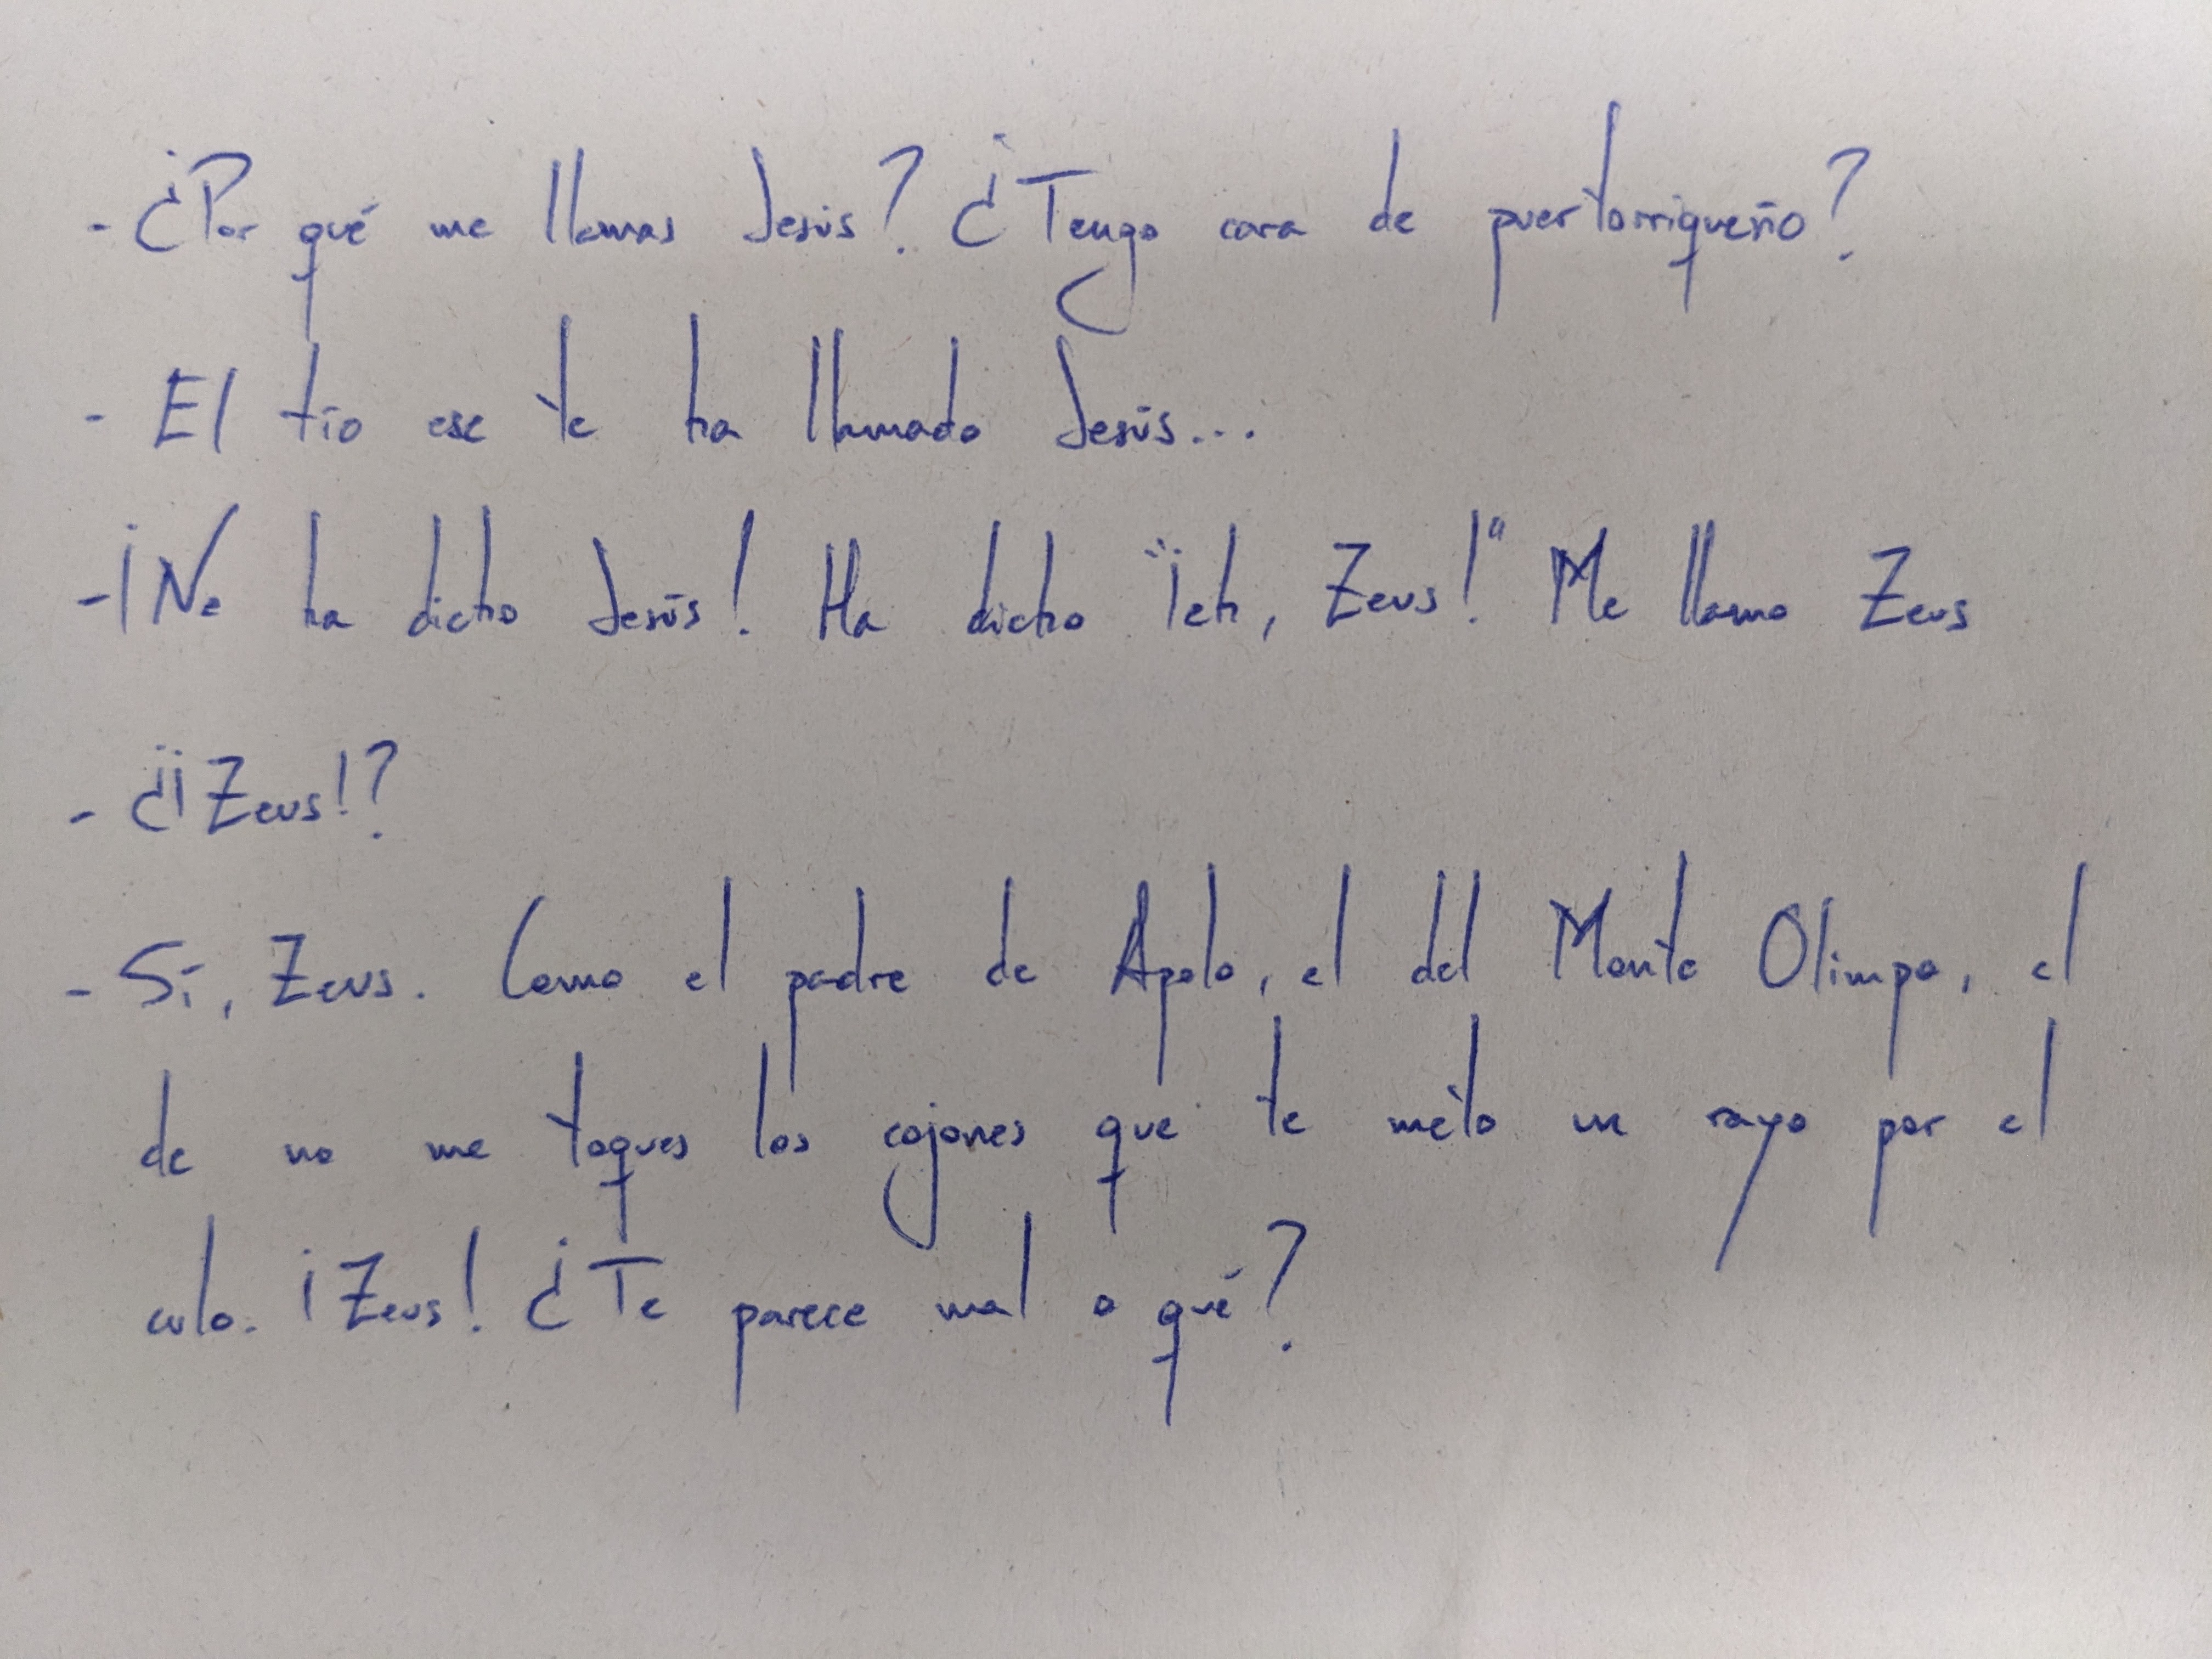 - ¿Por qué me llamas Jesús? ¿Tengo cara de puertorriqueño?
- El tío ese te ha llamado Jesús...
- ¡No ha dicho Jesús! Ha dicho "¡eh, Zeus!" Me llamo Zeus
- ¿¡Zeus!?
- Sí, Zeus. Como el padre de Apolo, el del Monte Olimpo, el
de no me toques los cojones que te meto un rayo por el
culo. ¡Zeus! ¿Te parece mal o qué?